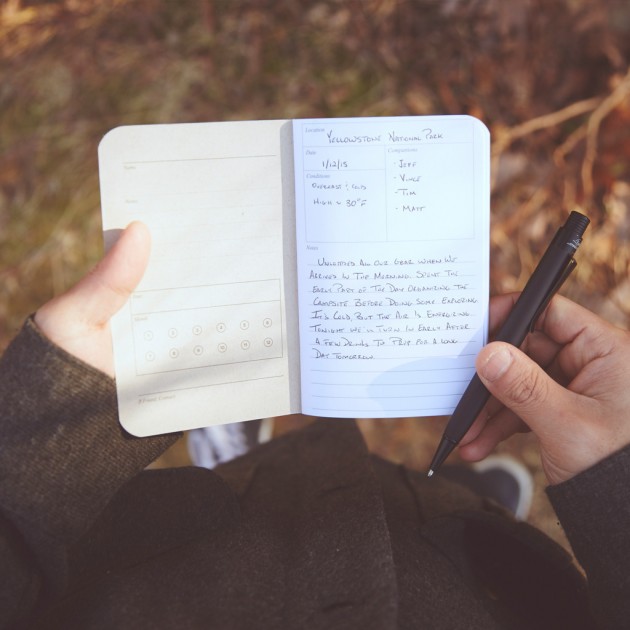 Location
Yellowstone National Park
Date
1/12/15
Companions
- Jeff
- Vince
- Tim
- Matt
Conditions
Overcast & Cold
High = 30°F
Notes
Unloaded All Our Gear When We
Arrived In The Morning. Spent The
Early Part Of The Day Organizing The
Campsite Before Doing Some Exploring.
It's Cold, But The Air Is Energizing.
Tonight We'll Turn In Early After
A Few Drinks To Prep For A Long
Day Tomorrow.
Name